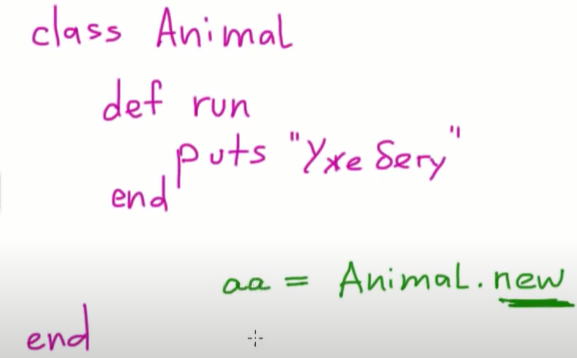 class Animal
def run
puts "Уже бегу"
end
aa = Animal.new
end